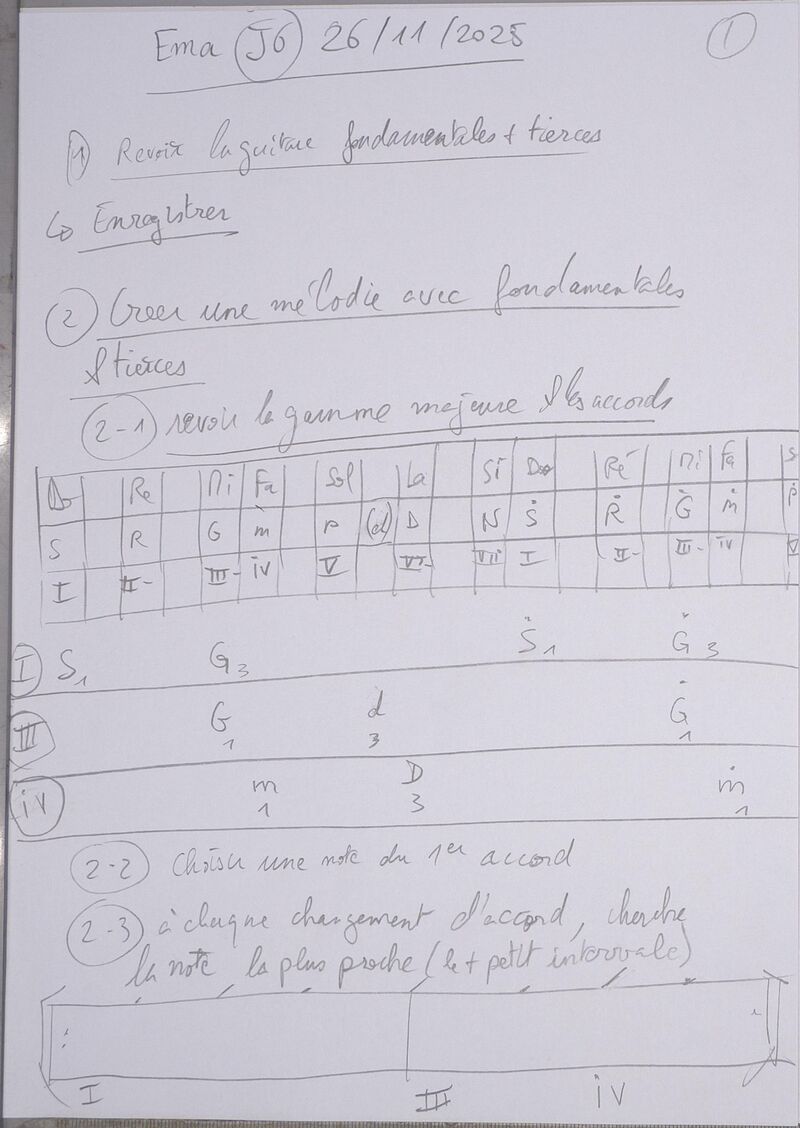 Ema J6 26/11/2025
1
1 Revoir la guitare fondamentales + tierces
↳ Enregistrer
2 Créer une mélodie avec fondamentales
& tierces
2-1 revoir la gamme majeure & les accords
Do Re Mi Fa Sol La Si Do Ré Mi Fa S
S R G m P (d) D N Ṡ Ṙ Ġ ṁ Ṗ
I II- III- iv V VI- VII I II- III- iv V
I S1 G3 Ṡ1 Ġ3
III G d Ġ
1 3 1
iv m D ṁ
1 3 1
2-2 choisir une note du 1er accord
2-3 à chaque changement d'accord, cherche
la note la plus proche (le + petit intervale)
I III iv